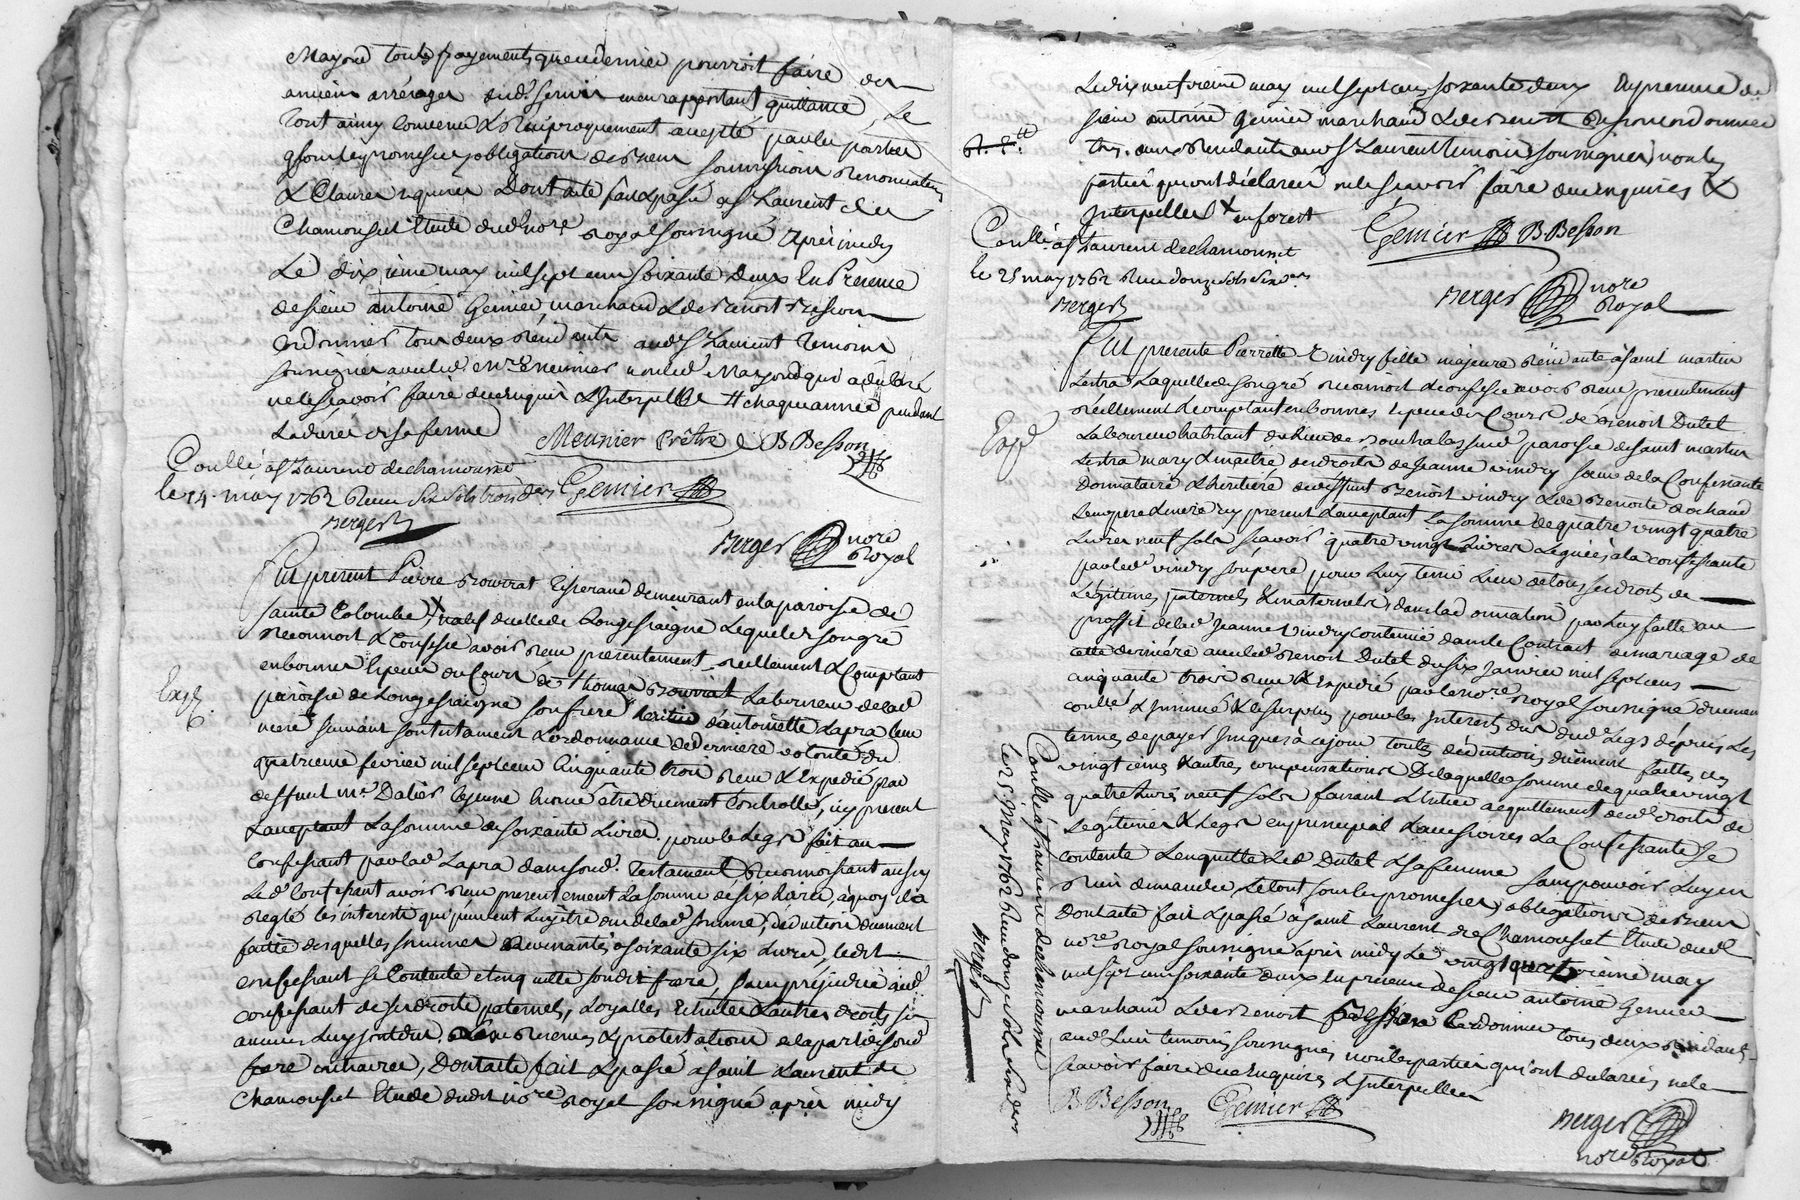 Mayoud touts payements que ce dernier pourroit faire des
anciens arrérages dud. servis en en rapportant quittance, Le
tout ainsy convenu & réciproquement accepté par les parties
sous les promesses, obligations de biens soumissions renonciations
& Clauses requises Dont acte fait & passé a St Laurent de
Chamousset Etude dud. nore royal soussigné après midy
Le dix ieme may mil sept cent soixante deux En Presence
de sieur antoine Genier, marchand & de Benoit Besson
Cordonnier tous deux résidents aud. St Laurent témoins
soussignés avec led. mre Meunier non led. Mayoud qui a déclaré
ne le scavoir faire de ce enquis & Interpellé # chaque année pendant
La durée de sa ferme
Meunier Prêtre B Besson
Conllé a St Laurent de chamousset
le 14 may 1762 Reçu six sols trois ders Genier
Berger
Berger nore
Royal
Fut present Pierre Bouvrat Tisserand demeurant en la paroisse de
sainte Colombe, X natif de celle de Longessaigne Lequel de son gré
Reconnoit & Confesse avoir reçu présentement réellement & Comptant
en bonnes Especes du Cours de Thomas Bouvrat Laboureur de lad.
Expé
paroisse de Longessaigne son frere héritier d'antoinette Lapra leur
mere suivant son testament & ordonnance de derniere volonté du
quatrieme fevrier mil sept cent Cinquante trois reçu & Expedié par
deffunt me Dalier Lejeune d'être duement Controllé, icy present
& acceptant La somme de soixante Livres pour le Legs fait au
confessant par lad. Lapra dans sond. Testament Reconnoissant aussy
Le d. Confessant avoir reçu presentement La somme de six Livres, à quoy il a
reglé les interests qui peuvent Luy être dus de lad. somme, déduction duement
faitte desquelles sommes Revenantes a soixante six Livres, ledit
confessant se Contente et en quitte sondit frere, sans préjudice aud.
confessant de ses droits paternels, Loyalles Echutes & autres droits si
aucuns Luy sont dus, sous reserves & protestations de la part de sond.
frere contraires, Dont acte fait & passé a saint Laurent de
Chamousset Etude dudit Nore Royal soussigné après midy
Le dix neuf vieme may mil sept cens soixante deux En presence de
sieur antoine Genier marchand & de Benoit Besson cordonnier
tous deux résidants aud. St Laurent temoins soussignés non les
parties qui ont déclaré ne le scavoir faire de ce enquises &
Interpellés X en forest
Genier B. Besson
Conllé a St Laurent de chamousset
le 25 may 1762 Reçu douze sols six ders
Berger
Berger nore
Royal
Fut presente Pierrette Vindry fille majeure résidante a saint martin
Lestra Laquelle de son gré reconnoit & confesse avoir reçu presentement
réellement & comptant en bonnes Especes du Cours de Benoit Dutel
Expé
Laboureur habitant du Lieu de paroisse de saint martin
Lestra mary & maitre des droits de Jeanne Vindry sœur de la Confessante
Donnataire & heritiere de deffunt Benoit Vindry & de Benoite
Leurs pere & mere icy present & acceptant La somme de quatre vingt quatre
Livres neuf sols scavoir quatre vingt Livres Leguées à la confessante
par led. Vindry son pere pour Luy tenir Lieu de tous ses droits de
Légitimes paternels & maternels, dans la donnation par Luy faitte au
proffit de lad. Jeanne Vindry contenue dans le Contrat de mariage de
cette derniere avec led. Benoit Dutel du six Janvier mil sept cens
cinquante trois reçu & Expedié par le nore royal soussigné duement
conllé & Insinué & le surplus pour les Interests dus dud. Legs depuis Les
termes de payes jusques à ce jour toutes déductions duement faittes
vingtiemes & autres compensations De laquelle somme de quatre vingt
quatre Livres neuf sols faisant L'entier acquittement desd. droits de
Legitimes & Legs en principal & accessoires La Confessante se
contente & en quitte Led. Dutel & sa femme sans pouvoir Luy en
rien demander, Le tout sous les promesses, obligations de biens
Dont acte fait & passé a saint Laurent de Chamousset Etude dud.
nore royal soussigné après midy Le vingt quatrieme may
mil sept cens soixante deux En presence de sieur antoine Genier
marchand & de Benoit Besson Cordonnier tous deux résidants
aud. Lieu temoins soussignés non les parties qui ont declaré ne le
scavoir faire de ce enquises & Interpellées
B. Besson Genier
Berger
nore Royal
Conllé a St Laurent de chamousset
le 25 may 1762 Reçu douze sols six ders
Berger